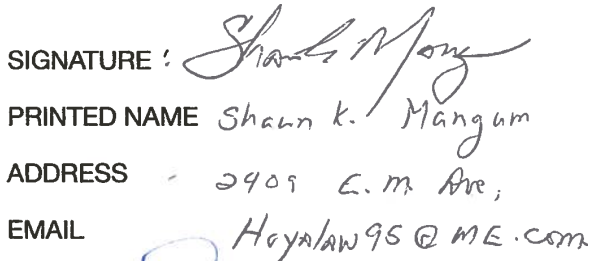 SIGNATURE :
PRINTED NAME Shaun K. Mangum
ADDRESS 2409 E.M. Ave,
EMAIL Hoyalaw95@ME.com